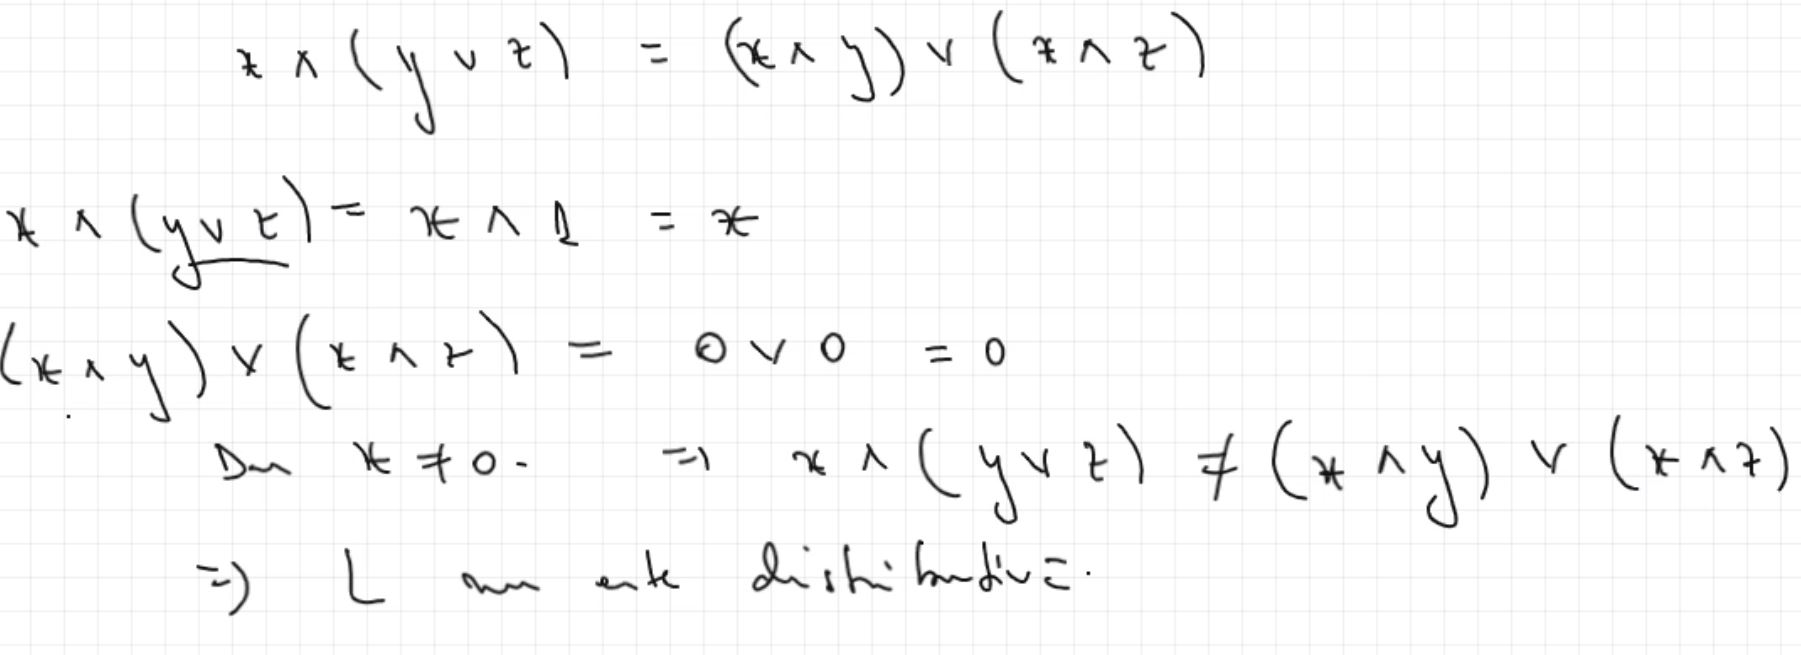 x ∧ (y ∨ z) = (x ∧ y) ∨ (x ∧ z)
x ∧ (y ∨ z) = x ∧ 1 = x
(x ∧ y) ∨ (x ∧ z) = 0 ∨ 0 = 0
Dar x ≠ 0. => x ∧ (y ∨ z) ≠ (x ∧ y) ∨ (x ∧ z)
=> L nu este distributivă.